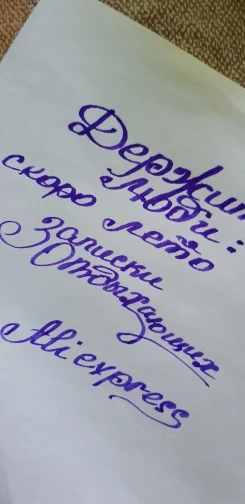 Держит
люди:
скоро лето
Записки
Отдыхающих
Aliexpress